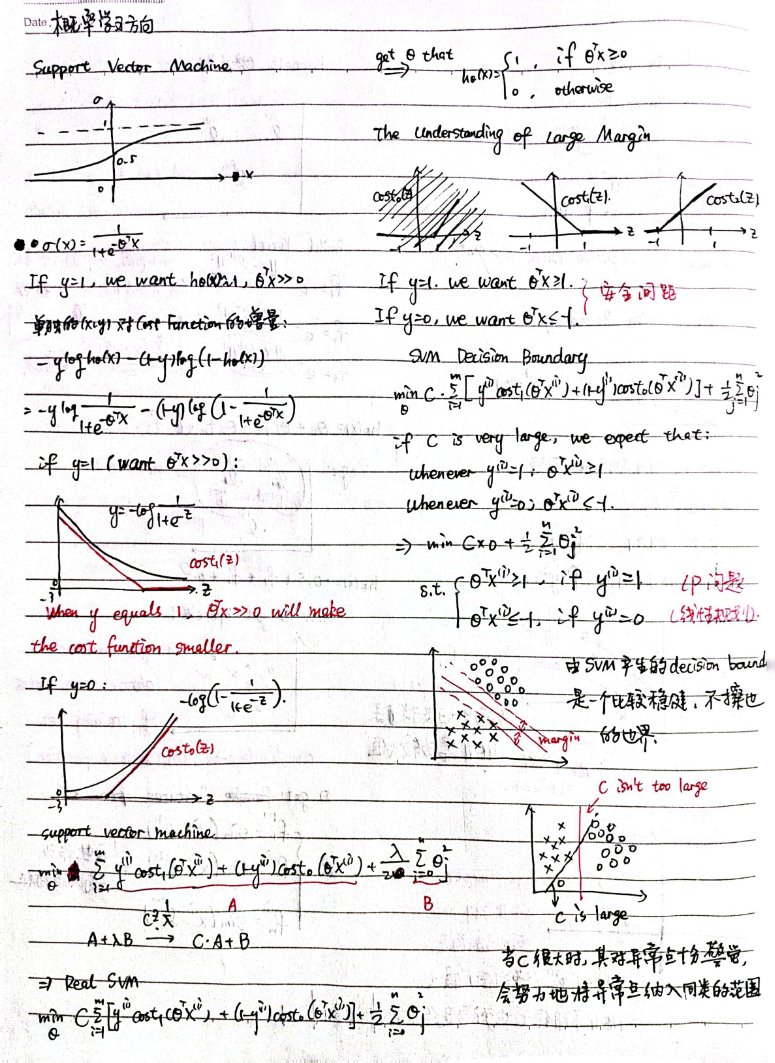 Date.
概率学习方向
Support Vector Machine
σ
1
0.5
0
x
σ(x) = 1/(1+e^{-θᵀx})
If y=1, we want hθ(x)≈1, θᵀx>>0
单独的(x,y)对Cost Function的增量:
-y log hθ(x) - (1-y) log(1-hθ(x))
= -y log 1/(1+e^{-θᵀx}) - (1-y) log(1 - 1/(1+e^{-θᵀx}))
if y=1 (want θᵀx>>0):
y=-log 1/(1+e^{-z})
cost₁(z)
0
-3
z
When y equals 1, θᵀx>>0 will make
the cost function smaller.
If y=0:
-log(1 - 1/(1+e^{-z})).
cost₀(z)
0
-3
z
support vector machine
min_θ Σ_{i=1}^m y⁽ⁱ⁾ cost₁(θᵀx⁽ⁱ⁾) + (1-y⁽ⁱ⁾) cost₀(θᵀx⁽ⁱ⁾) + λ/2 Σ_{j=0}^n θⱼ²
A B
A+λB → C·A+B
⇒ Real SVM
min_θ C Σ_{i=1}^m [y⁽ⁱ⁾ cost₁(θᵀx⁽ⁱ⁾) + (1-y⁽ⁱ⁾) cost₀(θᵀx⁽ⁱ⁾)] + 1/2 Σ_{i=0}^n θⱼ²
get θ that
⇒ hθ(x) = { 1, if θᵀx≥0
0, otherwise
The Understanding of Large Margin
cost₀(z)
-1 z
cost₁(z).
-1 1 z
cost₀(z)
-1 1
If y=1. we want θᵀx≥1.
If y=0, we want θᵀx≤-1.
} 安全间距
SVM Decision Boundary
min_θ C·Σ_{i=1}^m [y⁽ⁱ⁾cost₁(θᵀx⁽ⁱ⁾)+(1-y⁽ⁱ⁾)cost₀(θᵀx⁽ⁱ⁾)] + 1/2 Σ_{j=1}^n θⱼ²
if C is very large, we expect that:
whenever y⁽ⁱ⁾=1; θᵀx⁽ⁱ⁾≥1
whenever y⁽ⁱ⁾=0; θᵀx⁽ⁱ⁾≤-1.
⇒ min C×0 + 1/2 Σ_{i=1}^n θⱼ²
s.t. { θᵀx⁽ⁱ⁾≥1, if y⁽ⁱ⁾=1
θᵀx⁽ⁱ⁾≤-1, if y⁽ⁱ⁾=0
LP问题
(线性规划).
由SVM产生的decision bound
是一个比较稳健、不擦边
的边界.
margin
C isn't too large
C is large
当C很大时,其对异常点十分警觉,
会努力地将异常点纳入同类的范围